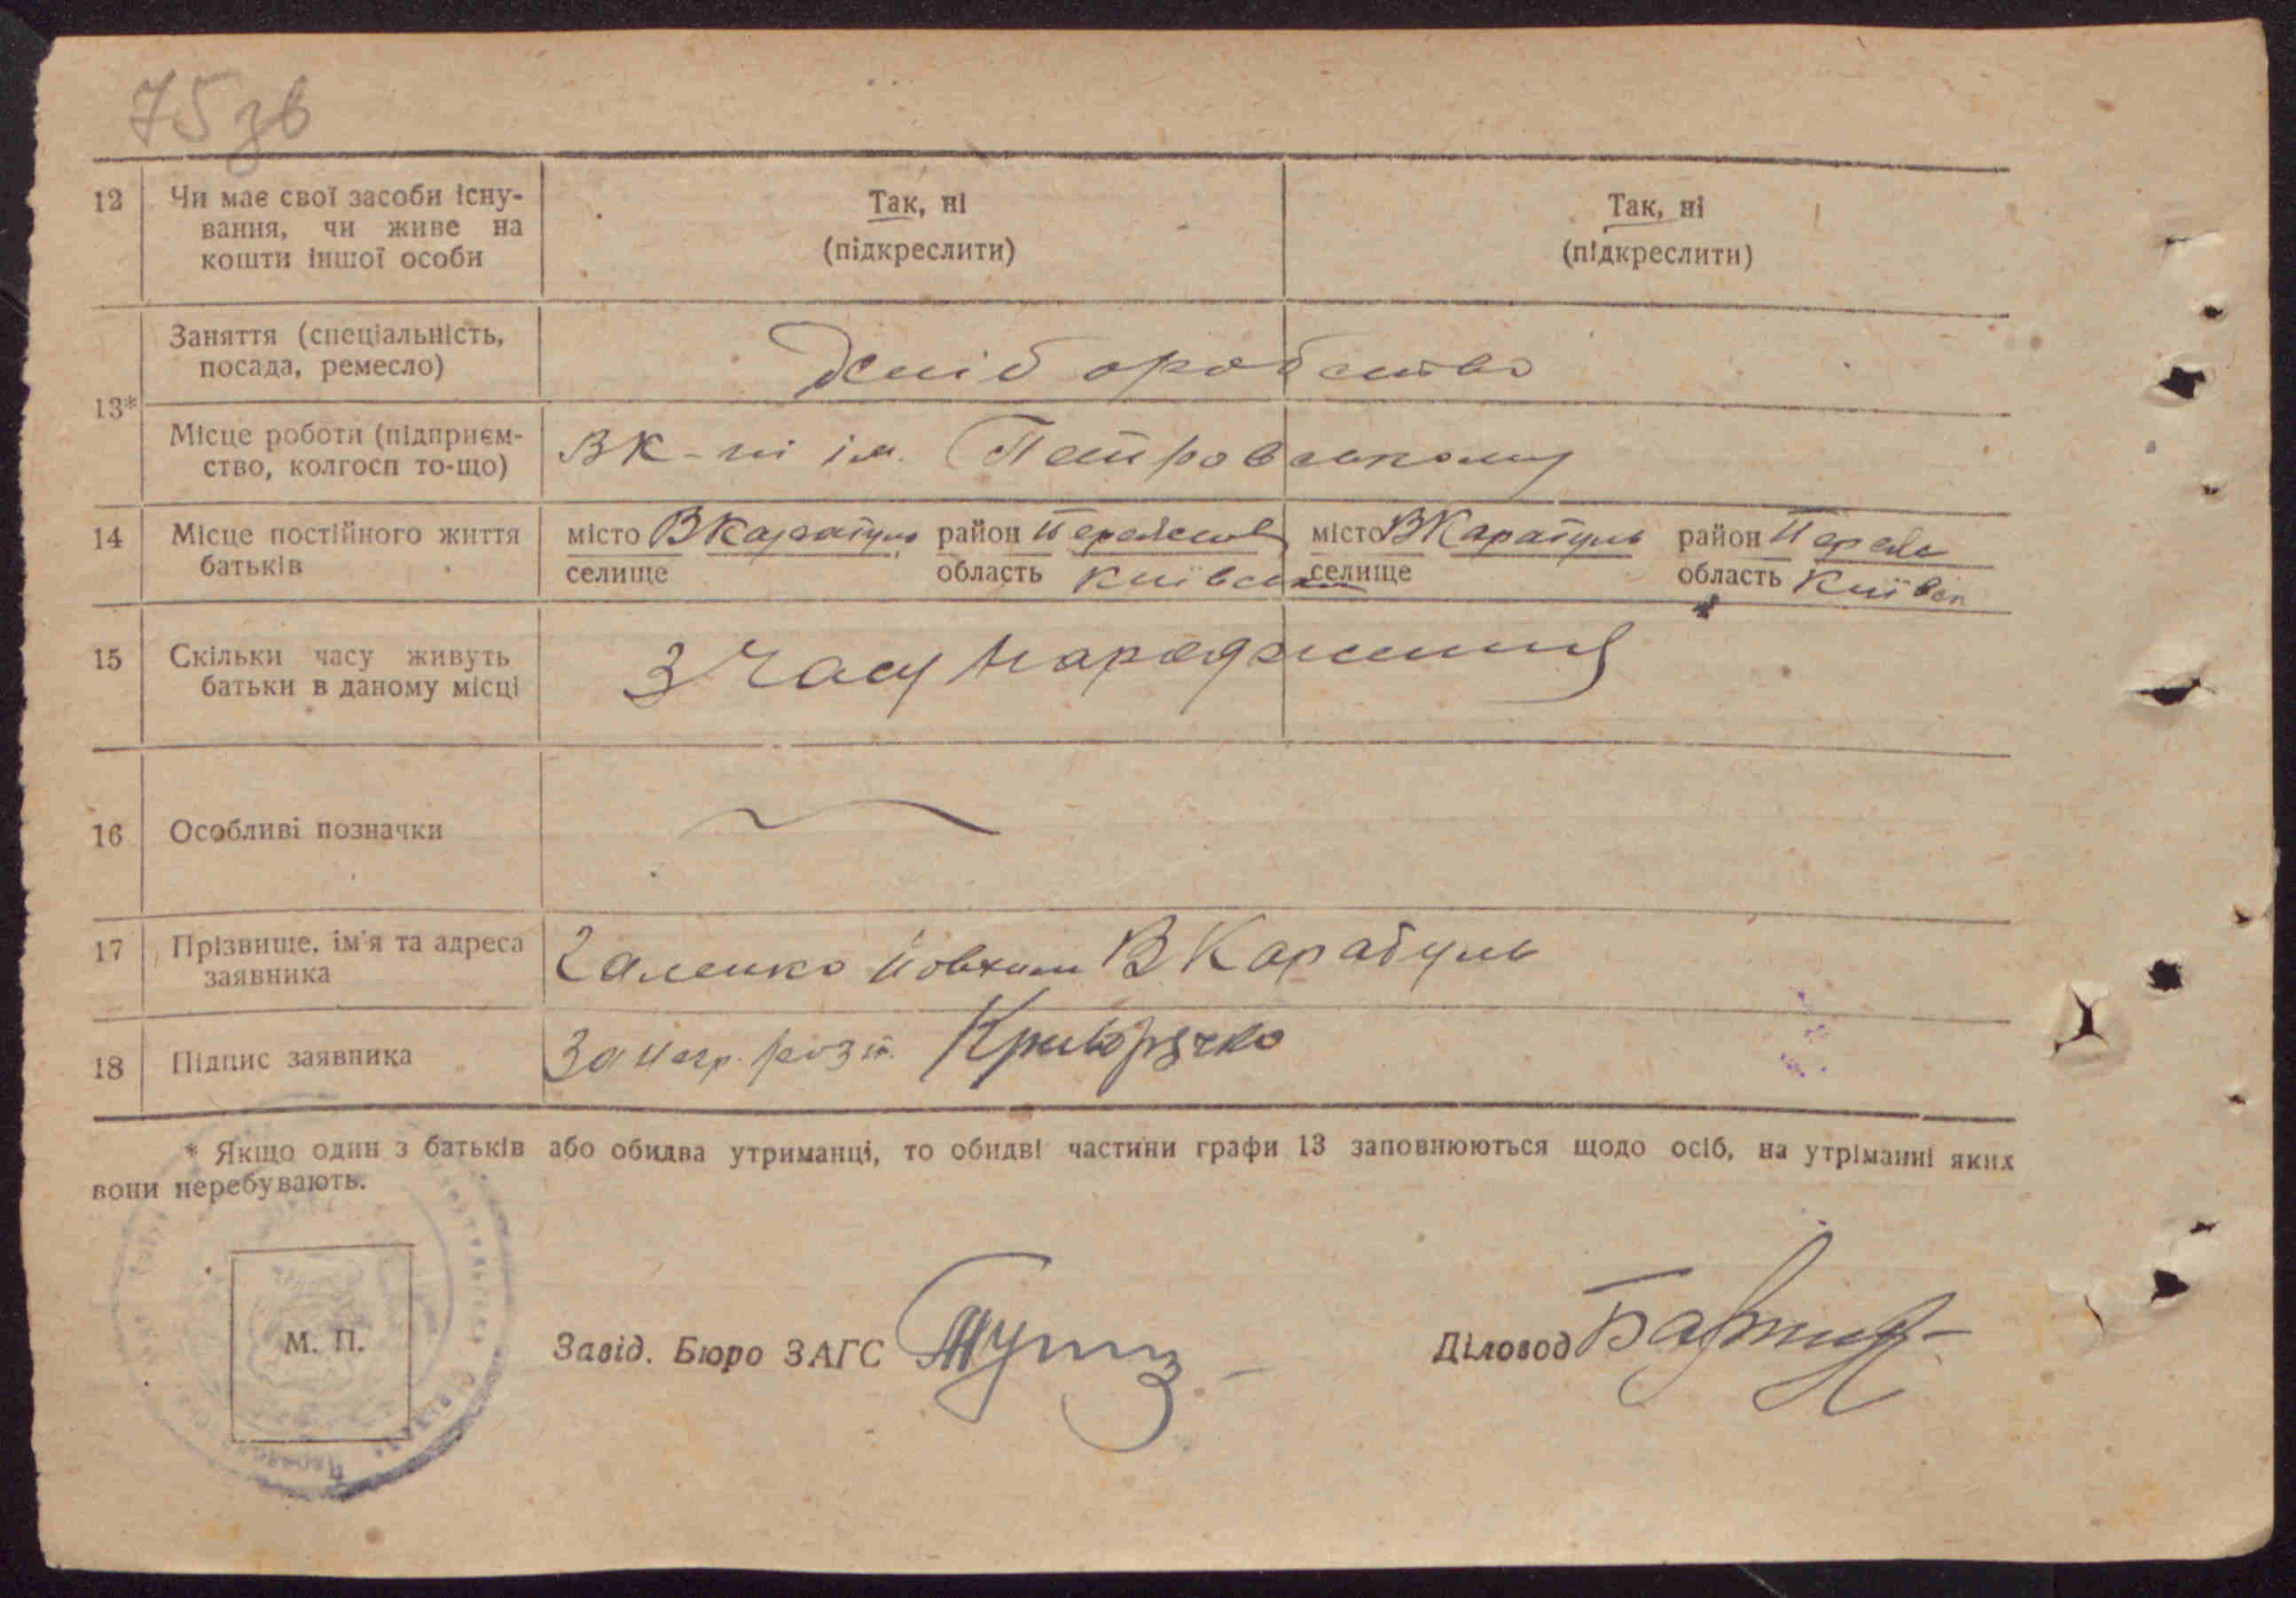 75 зв
12 Чи має свої засоби існу-
вання, чи живе на
кошти іншої особи
Так, ні
(підкреслити)
Так, ні
(підкреслити)
13*
Заняття (спеціальність,
посада, ремесло)
Хліборобство
Місце роботи (підприєм-
ство, колгосп то-що)
ВК-пі ім. Петровського
14 Місце постійного життя
батьків
місто В Каратуль район Переяслів
селище область Київська
місто В Каратуль район Переясл
селище область Київськ
15 Скільки часу живуть
батьки в даному місці
З часу народження
16 Особливі позначки
17 Прізвище, ім'я та адреса
заявника
Галенко Йовхим В Каратуль
18 Підпис заявника
За негр. розп. Криворучко
* Якщо один з батьків або обидва утриманці, то обидві частини графи 13 заповнюються щодо осіб, на утріманні яких
вони перебувають.
М. П.
Завід. Бюро ЗАГС
Діловод